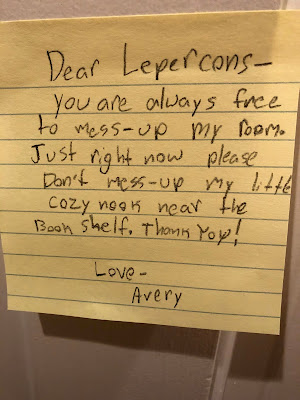 Dear Lepercons-
you are always free
to mess-up my room.
Just right now please
Don't mess-up my little
cozy nook near the
Book shelf. Thank You!
Love-
Avery